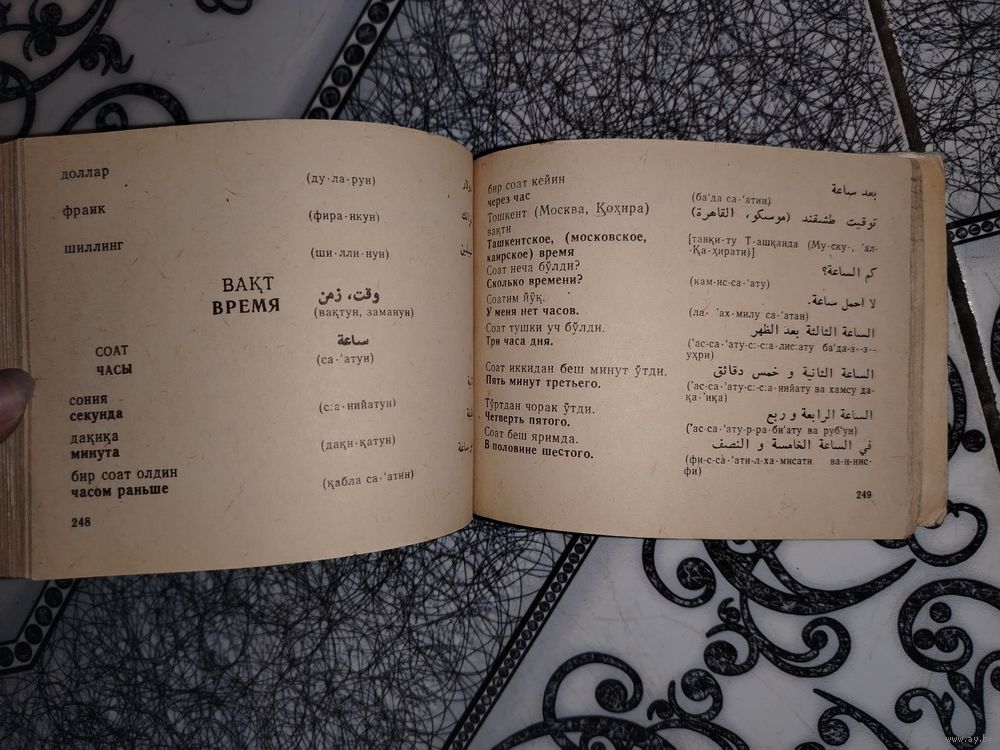 доллар (ду·ла·рун)
франк (фира·нкун)
шиллинг (ши·лли·нун)
ВАҚТ
ВРЕМЯ
وقت، زمن
(вақтун, заманун)
СОАТ
ЧАСЫ
ساعة
(са·ʻатун)
сония
секунда
(с:а·нийатун)
дақиқа
минута
(дақи·қатун)
бир соат олдин
часом раньше
(қабла са·ʻатин)
248
бир соат кейин
через час
بعد ساعة
(баʻда са·ʻатин)
Тошкент (Москва, Қоҳира)
вақти
Ташкентское, (московское,
каирское) время
توقيت طشقند (موسكو، القاهرة)
[тавқи·ту Т·ашқанда (Му·ску·, ʼал-
·Қа·ҳирати)]
Соат неча бўлди?
Сколько времени?
كم الساعة؟
(кам·ис·са·ʻату)
Соатим йўқ.
У меня нет часов.
لا احمل ساعة.
(ла· ʼаҳ·милу са·ʻатан)
Соат тушки уч бўлди.
Три часа дня.
الساعة الثالثة بعد الظهر
(ʼас·са·ʻату-с:·с:а·лис:ату баʻда-з··з··-
уҳри)
Соат иккидан беш минут ўтди.
Пять минут третьего.
الساعة الثانية و خمس دقائق
(ʼас·са·ʻату·с:·с:а·нийату ва хамсу да-
қа·ʼиқа)
Тўртдан чорак ўтди.
Четверть пятого.
الساعة الرابعة و ربع
(ʼас·са·ʻату-р·ра·биʻату ва рубʻун)
Соат беш яримда.
В половине шестого.
في الساعة الخامسة و النصف
(фи·с·са·ʻати·л·ха·мисати ва·н·нис-
фи)
249